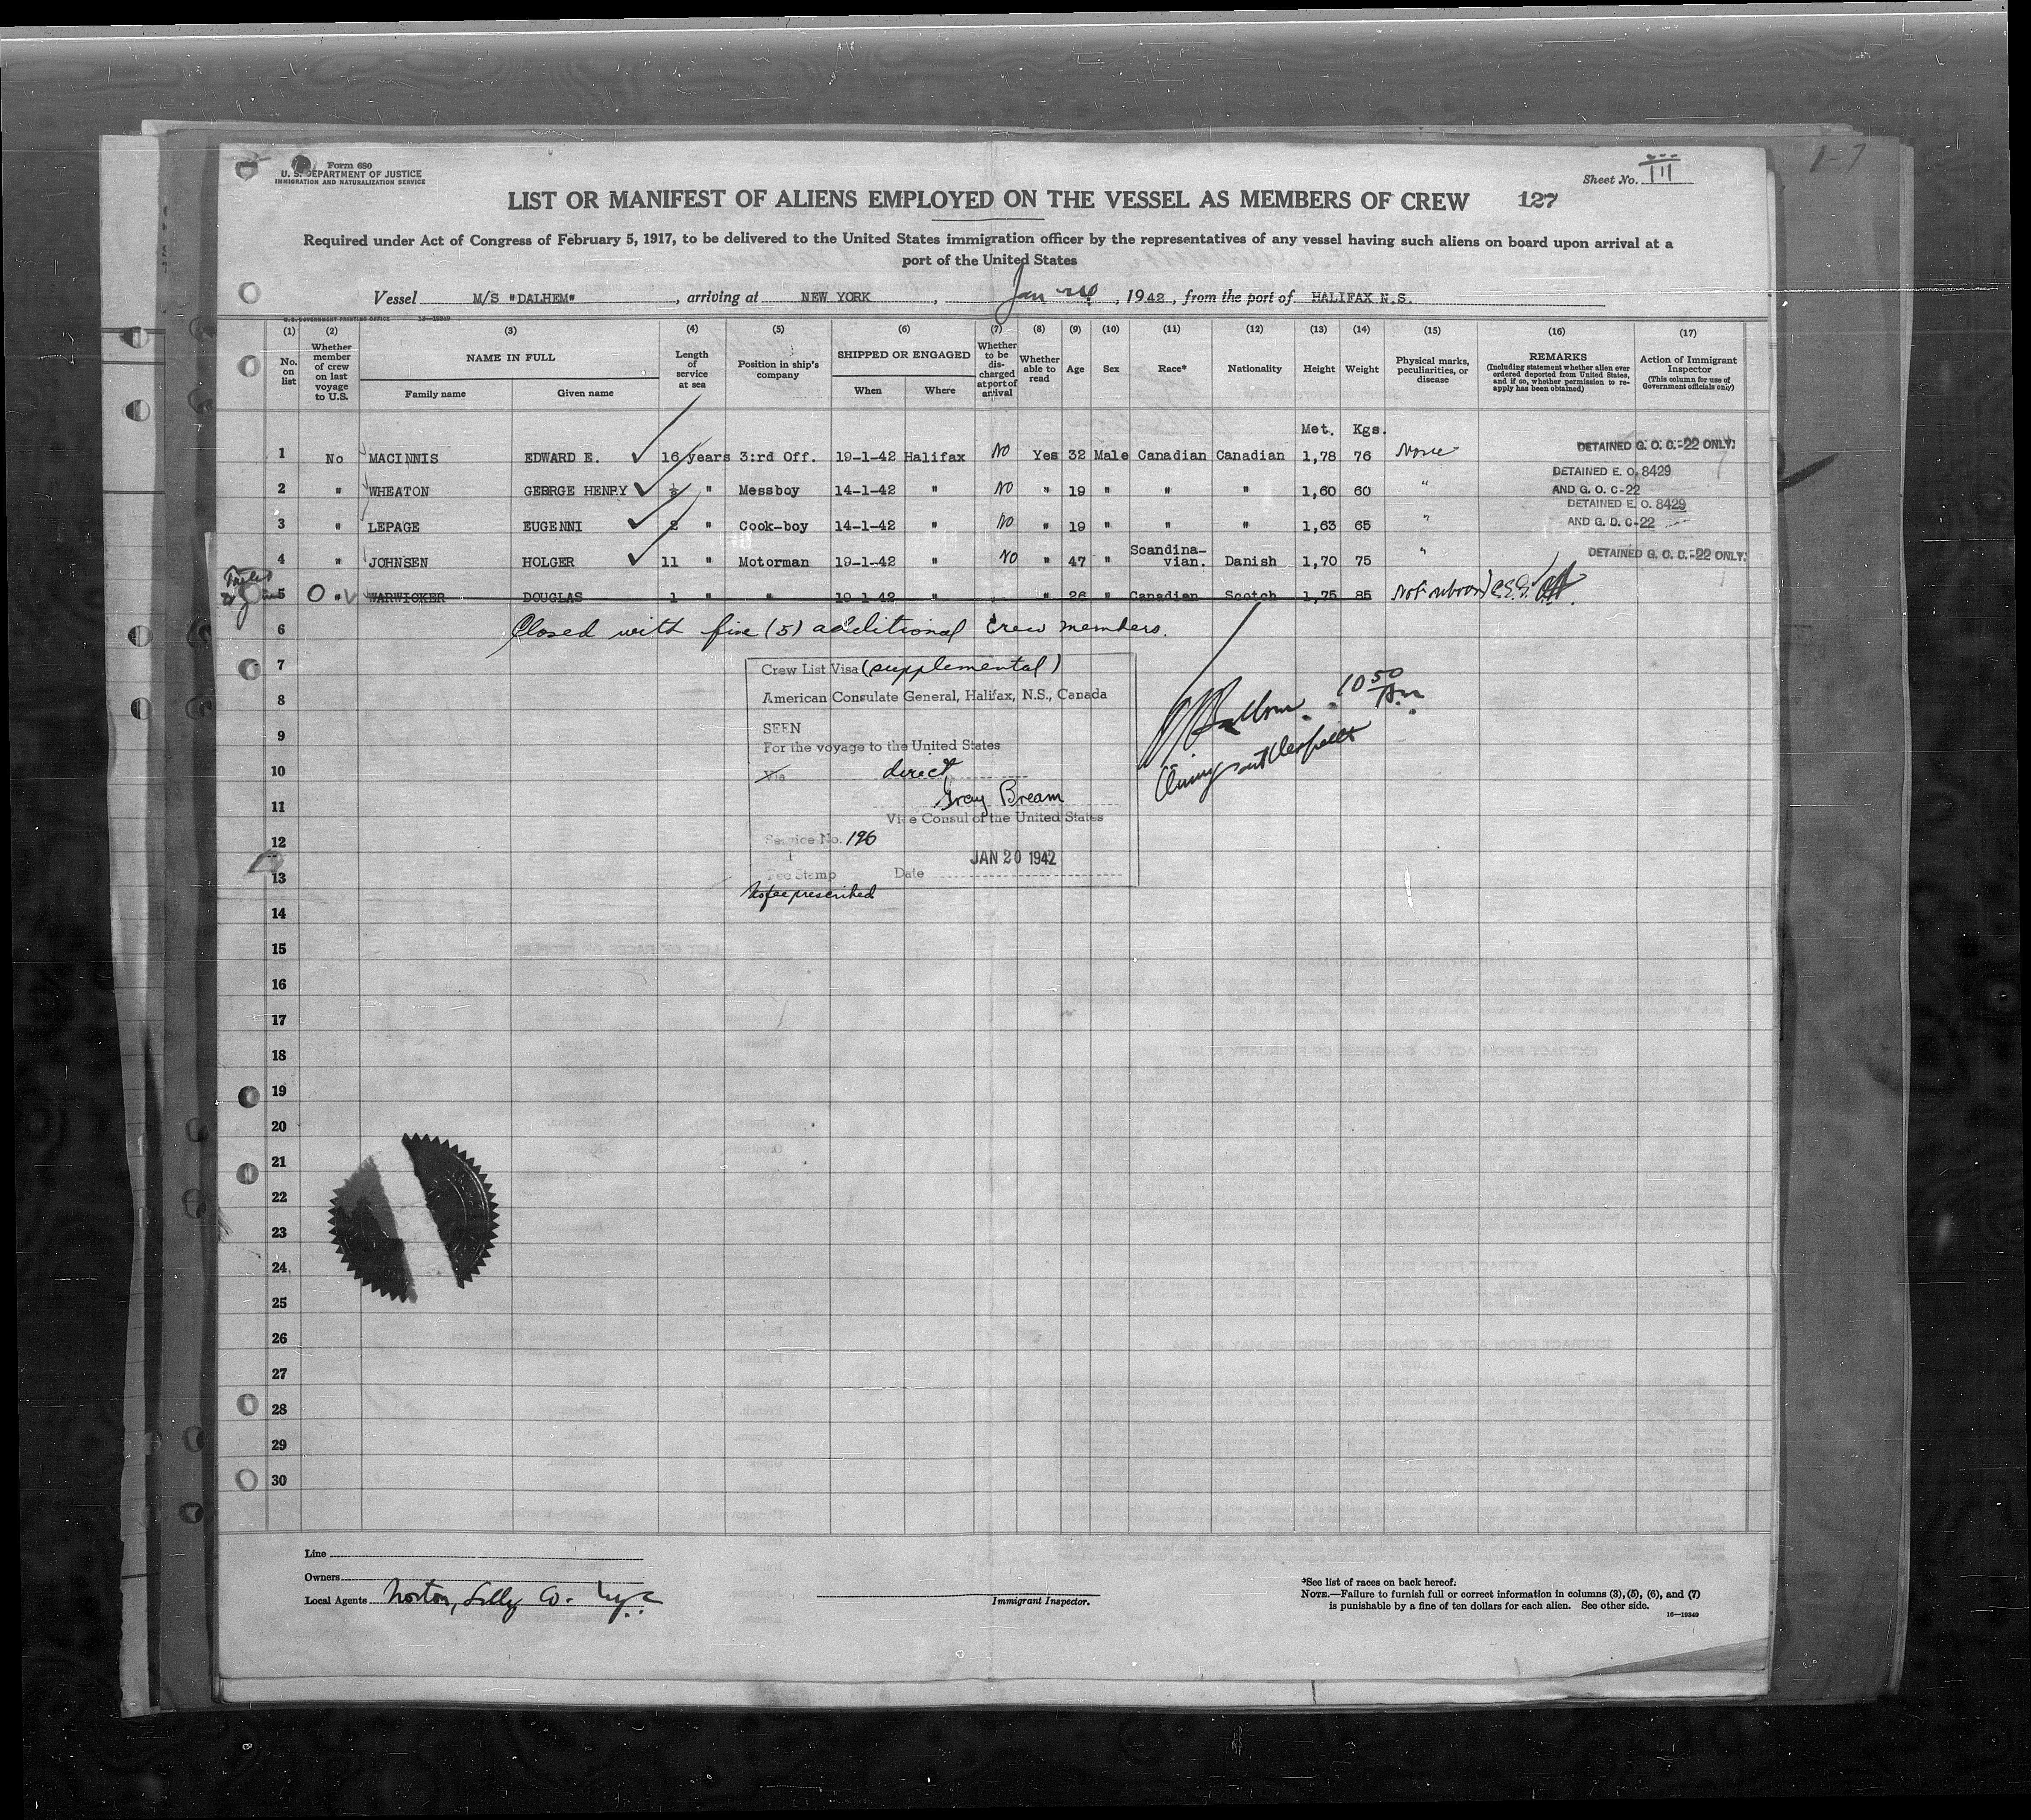 Form 680
U. S. DEPARTMENT OF JUSTICE
IMMIGRATION AND NATURALIZATION SERVICE
Sheet No. III
1-7
LIST OR MANIFEST OF ALIENS EMPLOYED ON THE VESSEL AS MEMBERS OF CREW 127
Required under Act of Congress of February 5, 1917, to be delivered to the United States immigration officer by the representatives of any vessel having such aliens on board upon arrival at a
port of the United States
Vessel M/S "DALHEM", arriving at NEW YORK, Jan, 1942, from the port of HALIFAX N.S.
U.S. GOVERNMENT PRINTING OFFICE 16—19349
(1) (2) (3) (4) (5) (6) (7) (8) (9) (10) (11) (12) (13) (14) (15) (16) (17)
No. on list
Whether member of crew on last voyage to U.S.
NAME IN FULL
Family name Given name
Length of service at sea
Position in ship's company
SHIPPED OR ENGAGED
When Where
Whether to be discharged at port of arrival
Whether able to read
Age
Sex
Race*
Nationality
Height
Weight
Physical marks, peculiarities, or disease
REMARKS
(Including statement whether alien ever ordered deported from United States, and if so, whether permission to reapply has been obtained)
Action of Immigrant Inspector
(This column for use of Government officials only)
Met. Kgs.
1 No MACINNIS EDWARD E. 16 years 3:rd Off. 19-1-42 Halifax NO Yes 32 Male Canadian Canadian 1,78 76 None DETAINED G. O. C.-22 ONLY.
2 " WHEATON GEORGE HENRY ½ " Messboy 14-1-42 " NO " 19 " " " 1,60 60 " DETAINED E. O. 8429
AND G. O. C-22
3 " LEPAGE EUGENNI 2 " Cook-boy 14-1-42 " NO " 19 " " " 1,63 65 " DETAINED E. O. 8429
AND G. O. C-22
4 " JOHNSEN HOLGER 11 " Motorman 19-1-42 " NO " 47 " Scandinavian. Danish 1,70 75 " DETAINED G. O. C.-22 ONLY.
5 O " WARWICKER DOUGLAS 1 " " 19-1-42 " " 26 " Canadian Scotch 1,75 85 Not onboard
6 Closed with five (5) additional crew members.
7
8
9
10
11
12
13
14
15
16
17
18
19
20
21
22
23
24
25
26
27
28
29
30
Crew List Visa (supplemental)
American Consulate General, Halifax, N.S., Canada
SEEN
For the voyage to the United States
Via direct
Gray Bream
Vice Consul of the United States
Service No. 196
JAN 20 1942
Fee Stamp Date
No fee prescribed
10 50 Am
Line
Owners
Local Agents Norton, Lilly Co. NYC
Immigrant Inspector.
*See list of races on back hereof.
NOTE.—Failure to furnish full or correct information in columns (3), (5), (6), and (7)
is punishable by a fine of ten dollars for each alien. See other side.
16—19349